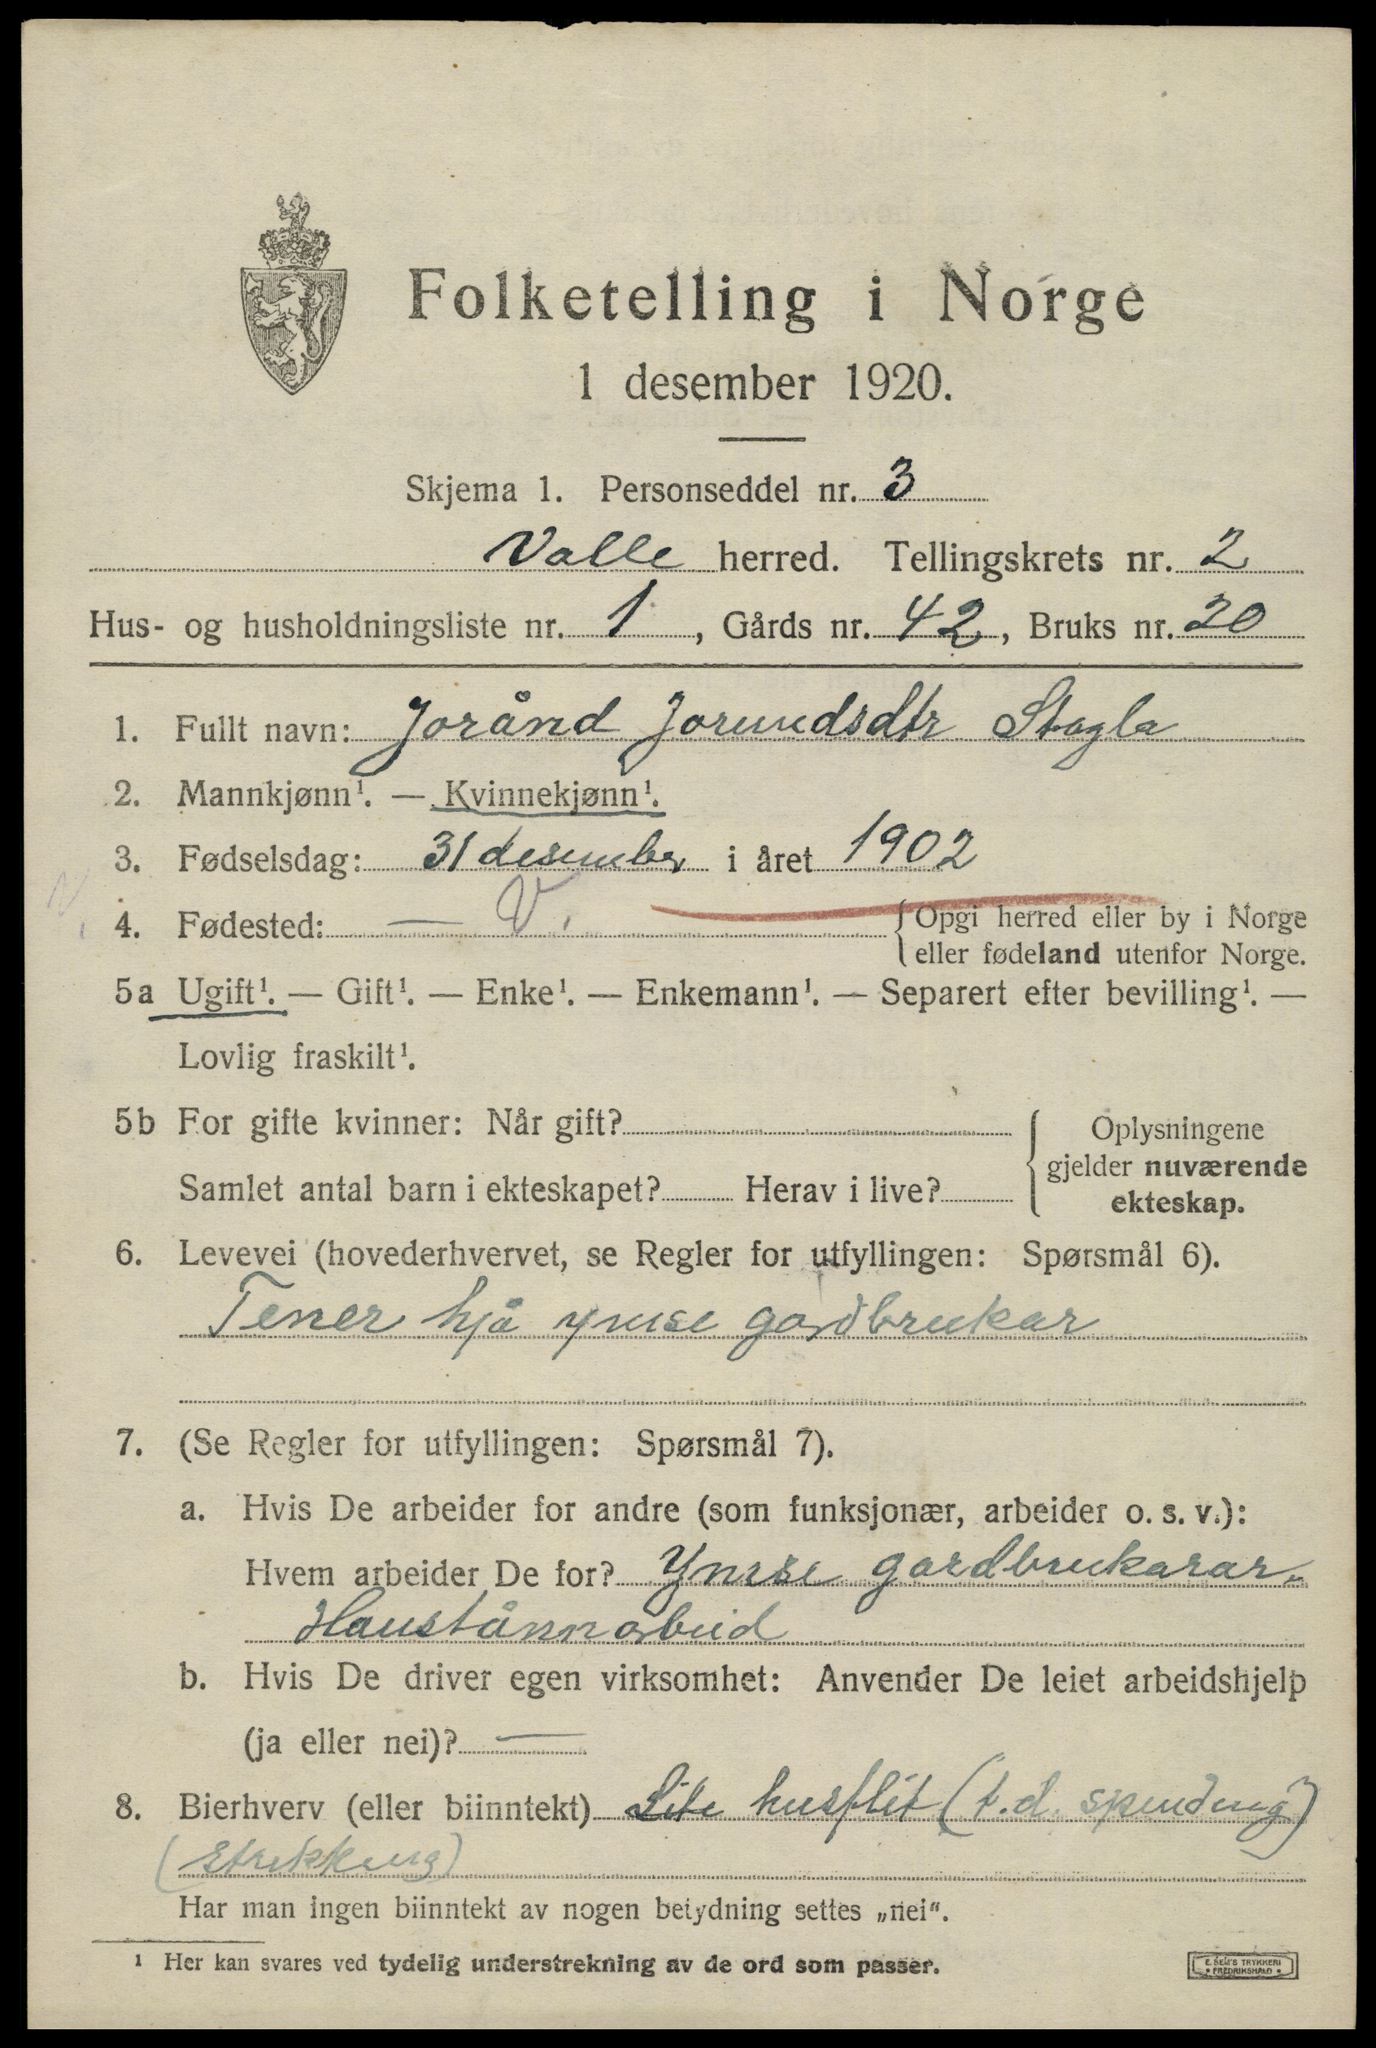 Folketelling i Norge
1 desember 1920.
Skjema 1. Personseddel nr. 3
Valle herred. Tellingskrets nr. 2
Hus- og husholdningsliste nr. 1, Gårds nr. 42, Bruks nr. 20
1. Fullt navn: Joránd Jorundsdtr Stagla
2. Mannkjønn¹. — Kvinnekjønn¹.
3. Fødselsdag: 31 desember i året 1902
4. Fødested: — V. {Opgi herred eller by i Norge
eller fødeland utenfor Norge.
5a Ugift¹. — Gift¹. — Enke¹. — Enkemann¹. — Separert efter bevilling¹. —
Lovlig fraskilt¹.
5b For gifte kvinner: Når gift? Oplysningene
gjelder nuværende
Samlet antal barn i ekteskapet? Herav i live? ekteskap.
6. Levevei (hovederhvervet, se Regler for utfyllingen: Spørsmål 6).
Tener hjå ymse gardbrukar
7. (Se Regler for utfyllingen: Spørsmål 7).
a. Hvis De arbeider for andre (som funksjonær, arbeider o. s. v.):
Hvem arbeider De for? Ymse gardbrukarar.
Haustånnarbeid
b. Hvis De driver egen virksomhet: Anvender De leiet arbeidshjelp
(ja eller nei)? —
8. Bierhverv (eller biinntekt) Lite husflit (t.d. spinding)
(strikking)
Har man ingen biinntekt av nogen betydning settes „nei“.
¹ Her kan svares ved tydelig understrekning av de ord som passer.
E. SEM'S TRYKKERI
• FREDRIKSHALD •